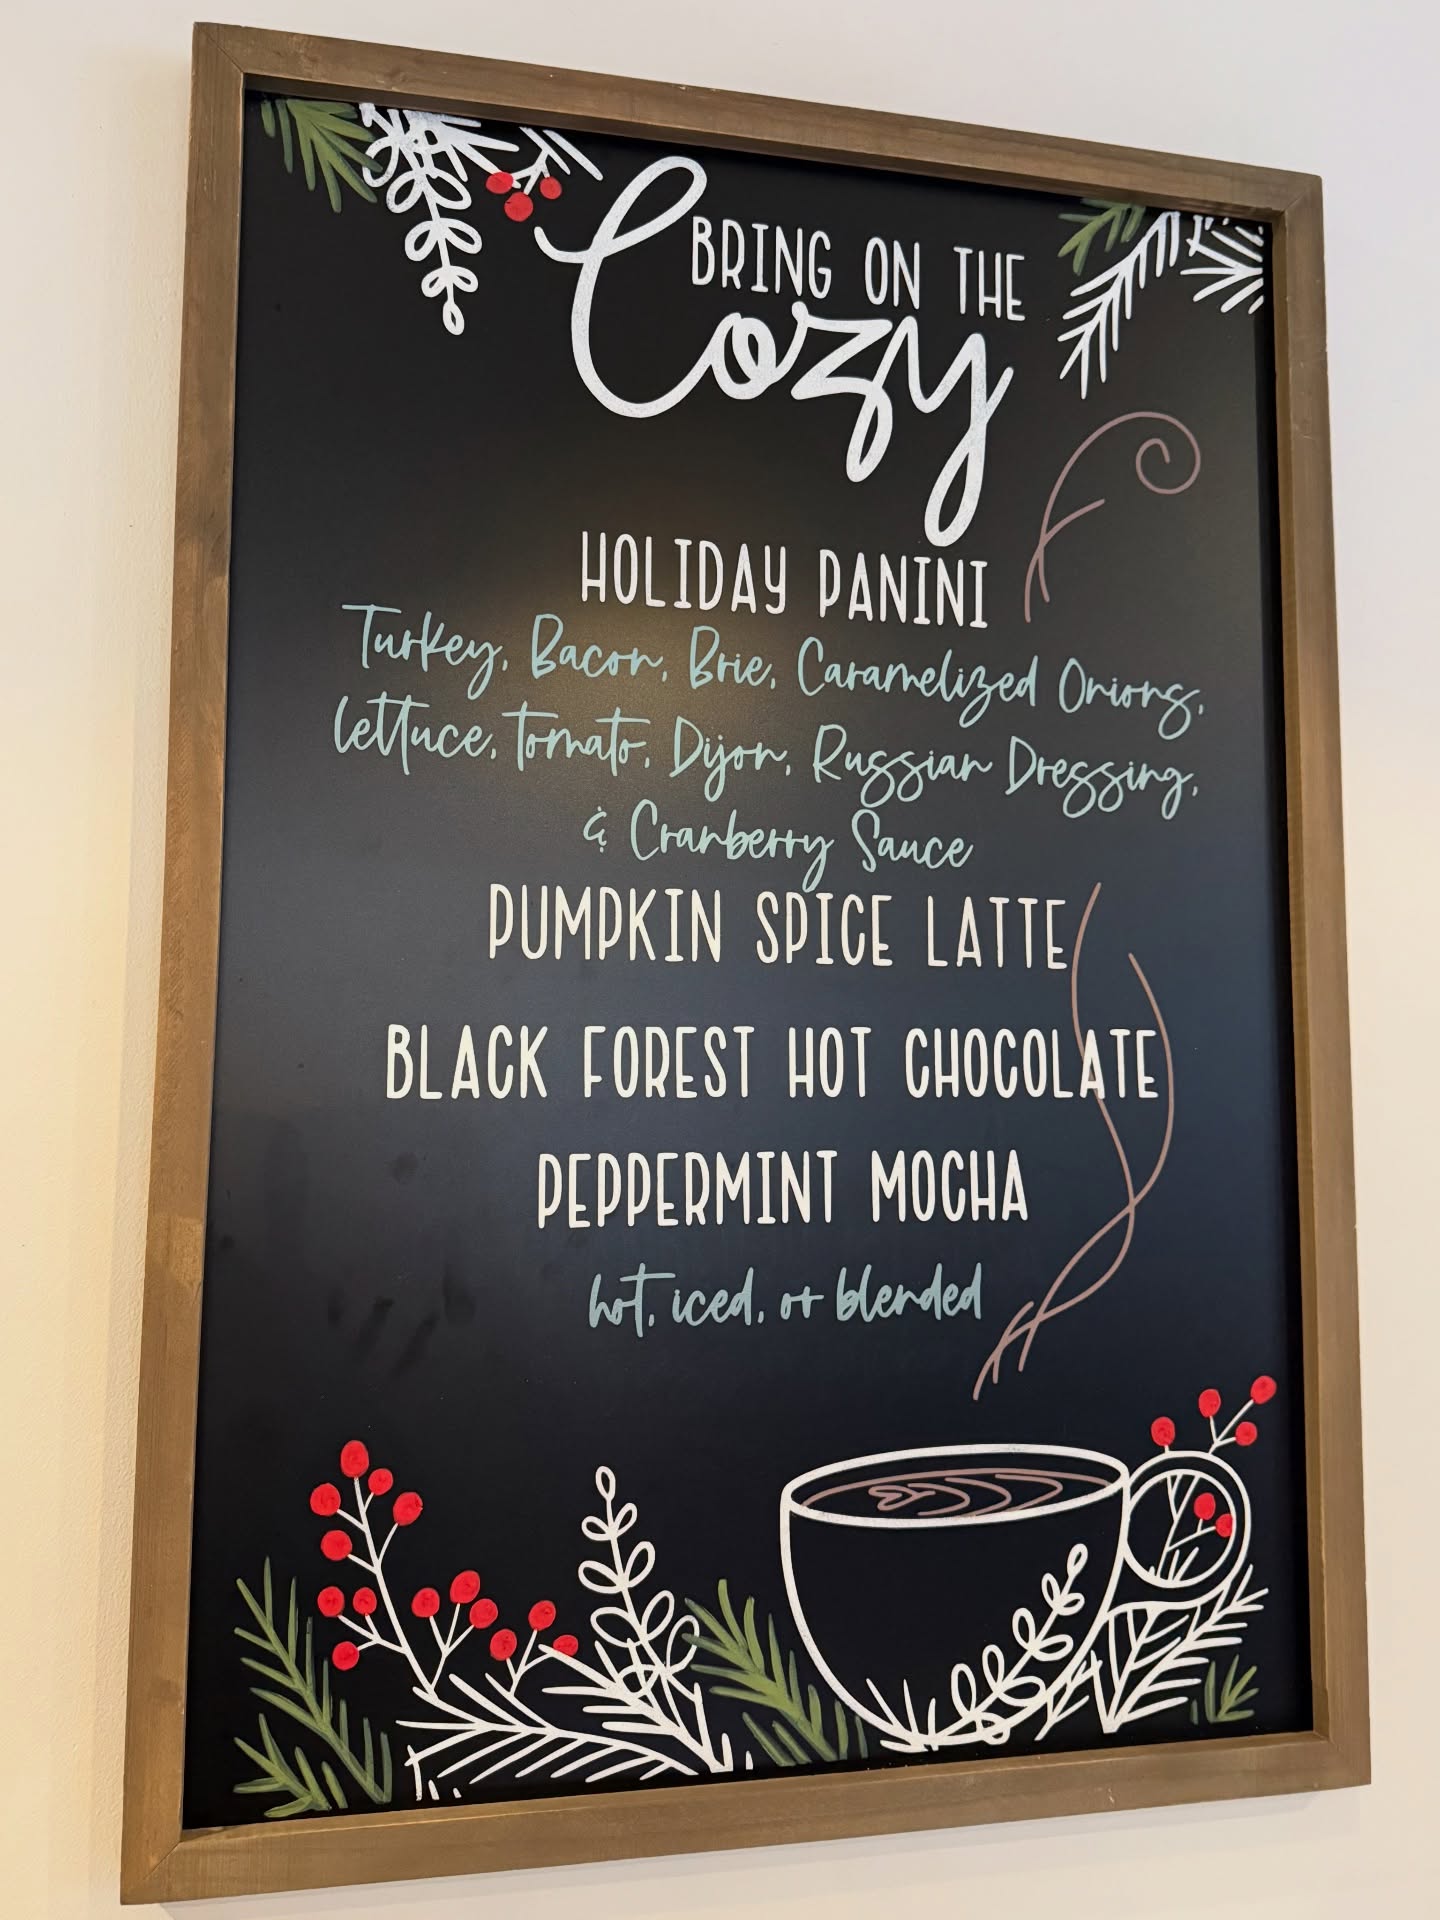 BRING ON THE
Cozy
HOLIDAY PANINI
Turkey, Bacon, Brie, Caramelized Onions,
lettuce, tomato, Dijon, Russian Dressing,
& Cranberry Sauce
PUMPKIN SPICE LATTE
BLACK FOREST HOT CHOCOLATE
PEPPERMINT MOCHA
hot, iced, or blended